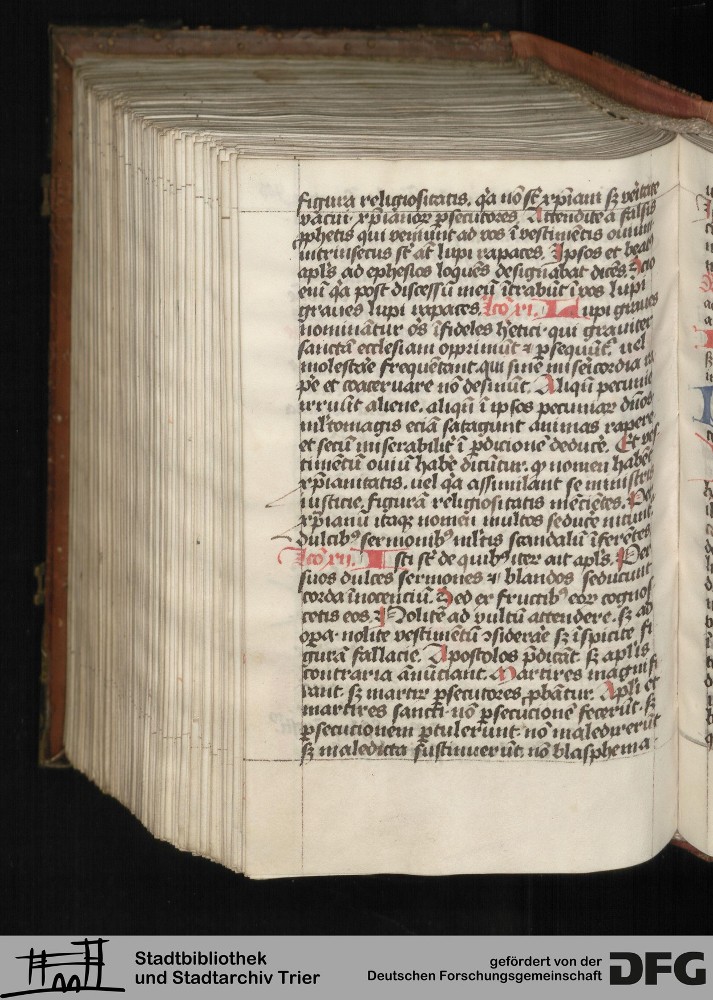 figura religiositatis. q̃a nõ sť xp̃iani sʒ veritate
vacui. xp̃ianoꝝ ꝑsecutores. Attendite a falsis
ꝓphetis qui veniũt ad vos ĩ vestimẽtis ouium
intrinsecus sť at̃ lupi rapaces. Ipsos et beatꝰ
apl̃s ad ephesios loquẽs designabat dicẽs. Scio
eni q̃a post discessũ meũ ĩtrabũt ĩ vos lupi
graues lupi rapaces. Lc̃o xi. Lupi graues
nominãtur oẽs ĩfideles h̃etici qui grauiter
sanctã ecclesiam opprimũt ⁊ ꝑsequũt᷑. uel
molestare frequẽtant. qui sine misericordia
et coaceruare nõ desinũt. Aliqñ pecunie
irruũt aliene. aliqñ ĩ ipsos pecuniaꝝ dños
ml̃tomagis eciã satagunt animas rapere
et secũ miserabilit̃ ĩ ꝑdicionẽ deducẽ. Et ves
timẽtũ ouiũ habẽ dicũtur. ꝙ nomen habẽt
xp̃ianitatis. uel q̃a assimilant se ministris
iusticie. figurã religiositatis mẽciẽtes. Per
xp̃ianũ itaqꝫ nomen multos seducẽ nitunt᷑.
dulcibꝰ sermonibꝰ ml̃tis scandalũ ĩferẽtes.
Lc̃o xii. Isti sť de quibꝰ iter̃ ait apl̃s. Per
suos dulces sermones ⁊ blandos seducunt
corda ĩnocenciũ. Sed ex fructibꝰ eoꝝ cognos
cetis eos. Nolite ad vultũ attendere. sʒ ad
oꝑa. nolite vestimẽtũ ɔsiderãe sʒ ĩspicite fi
gurã fallacie. Apostolos p̃dicãt sʒ apl̃is
contraria ãnũciant. Martires magnifi
cant. sʒ martiꝝ ꝑsecutores ꝓbãtur. Apl̃i et
martires sancti nõ ꝑsecucionẽ fecerũt. sʒ
ꝑsecucionem ꝑtulerunt. nõ maledixerũt
sʒ maledicta sustinuerũt. nõ blasphema
Stadtbibliothek
und Stadtarchiv Trier
gefördert von der
Deutschen Forschungsgemeinschaft
DFG